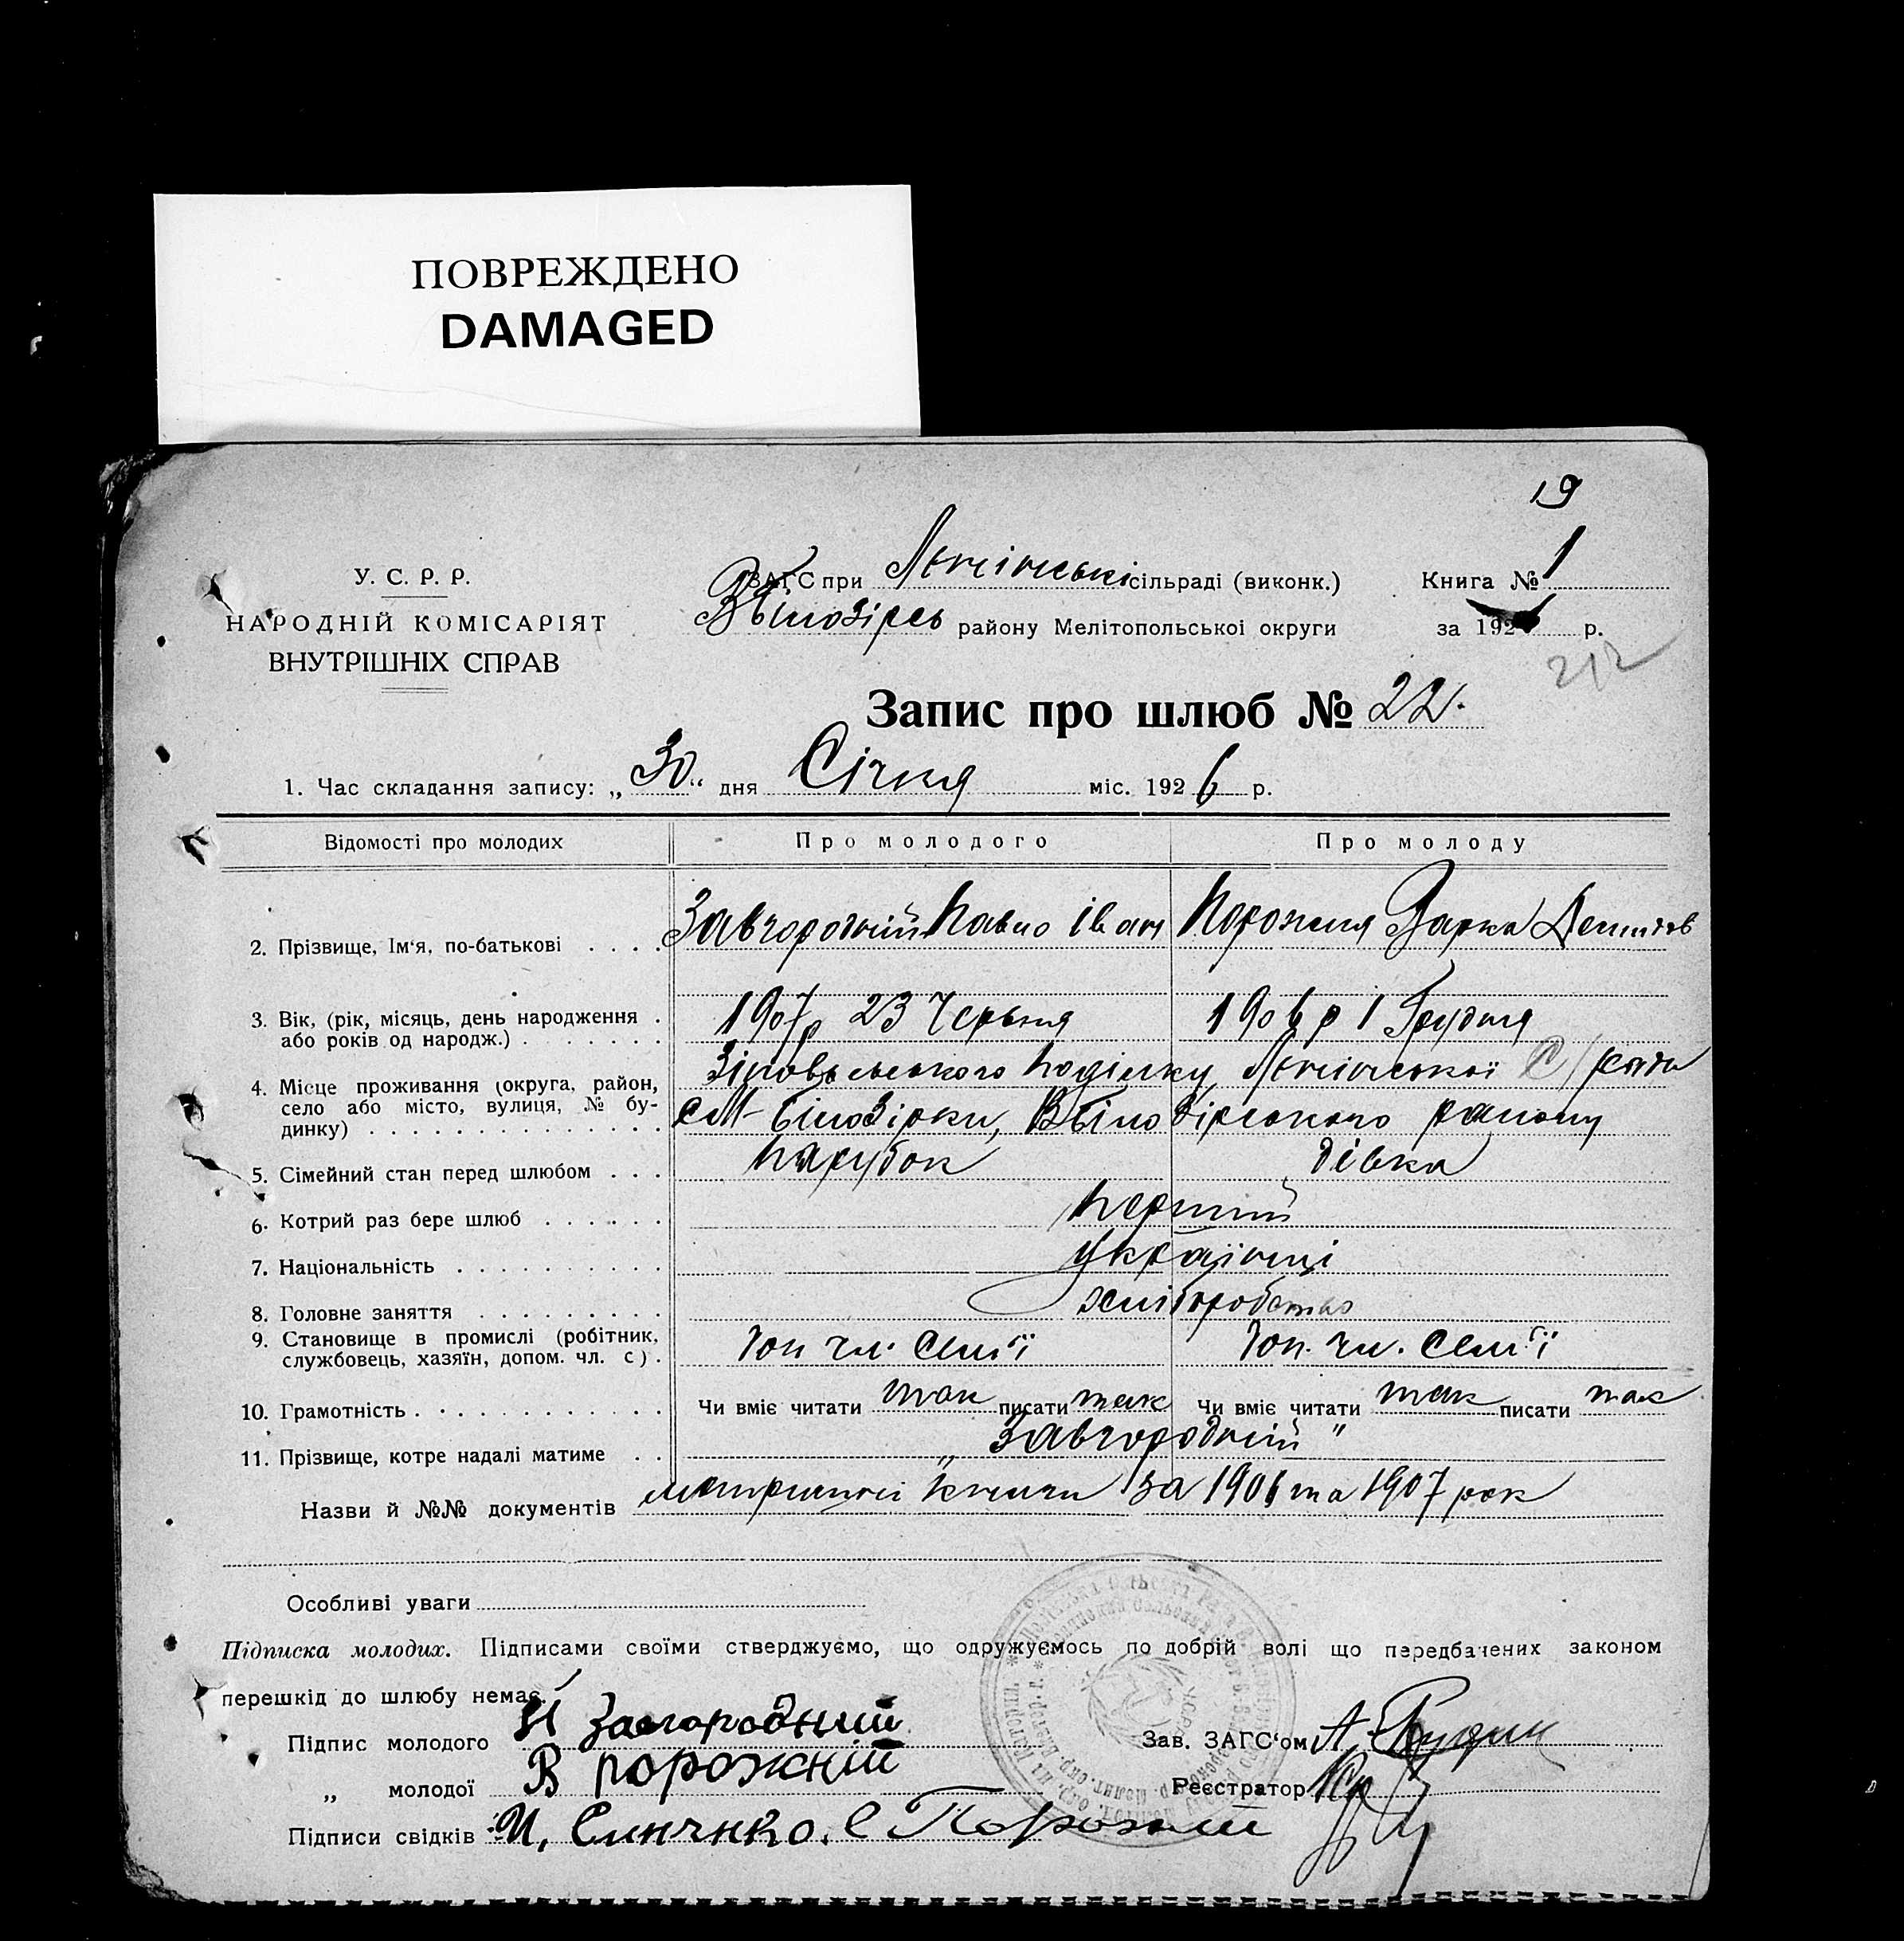 ПОВРЕЖДЕНО
DAMAGED
19
У. С. Р. Р.
НАРОДНІЙ КОМІСАРІЯТ
ВНУТРІШНІХ СПРАВ
ЗАГС при Ленінські сільраді (виконк.)
Книга № 1
В Білозірсь району Мелітопольської округи
за 192 р.
212
Запис про шлюб № 22.
1. Час складання запису: „30“ дня Січня міс. 1926 р.
Відомості про молодих
Про молодого
Про молоду
2. Прізвище, Ім'я, по-батькові . . . . Завгородній Павло Іван
Порожня Варка
3. Вік, (рік, місяць, день народження .
або років од народж.) . . . . . . .
1907р 23 Червня
1906 р 1 Грудня
4. Місце проживання (округа, район,
село або місто, вулиця, № бу-
динку) . . . . . . . . . . . . . .
Поділку, Ленінської С/ради
с М-Білозірки, ВБілозірського району
5. Сімейний стан перед шлюбом . . . парубок
дівка
6. Котрий раз бере шлюб . . . . . . перший
7. Національність . . . . . . . . . . українці
8. Головне заняття . . . . . . . . . хліборобство
9. Становище в промислі (робітник,
службовець, хазяїн, допом. чл. с) .
доп чл. сем'ї
доп. чл. сем'ї
10. Грамотність . . . . . . . . . . . . Чи вміє читати так писати так
Чи вміє читати так писати так
11. Прізвище, котре надалі матиме . . „Завгородній"
Назви й №№ документів метричні книги за 1906 та 1907 рок
Особливі уваги
Підписка молодих. Підписами своїми стверджуємо, що одружуємось по добрій волі що передбачених законом
перешкід до шлюбу немає.
Підпис молодого Завгородний
Зав. ЗАГС'ом А.
„ молодої В порожній
Реєстратор
Підписи свідків И. С Порожній